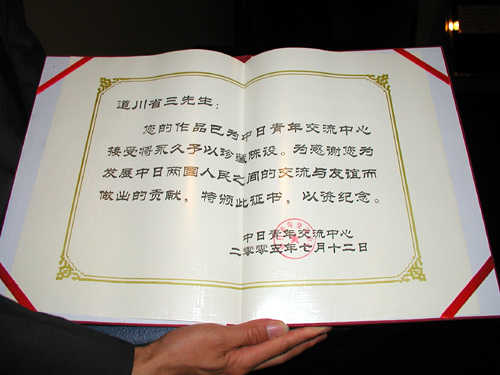 道川省三先生：
您的作品已为中日青年交流中心
接受将永久予以珍藏陈设。为感谢您为
发展中日两国人民之间的交流与友谊而
做出的贡献，特颁此证书，以资纪念。
中日青年交流中心
二零零五年七月十二日